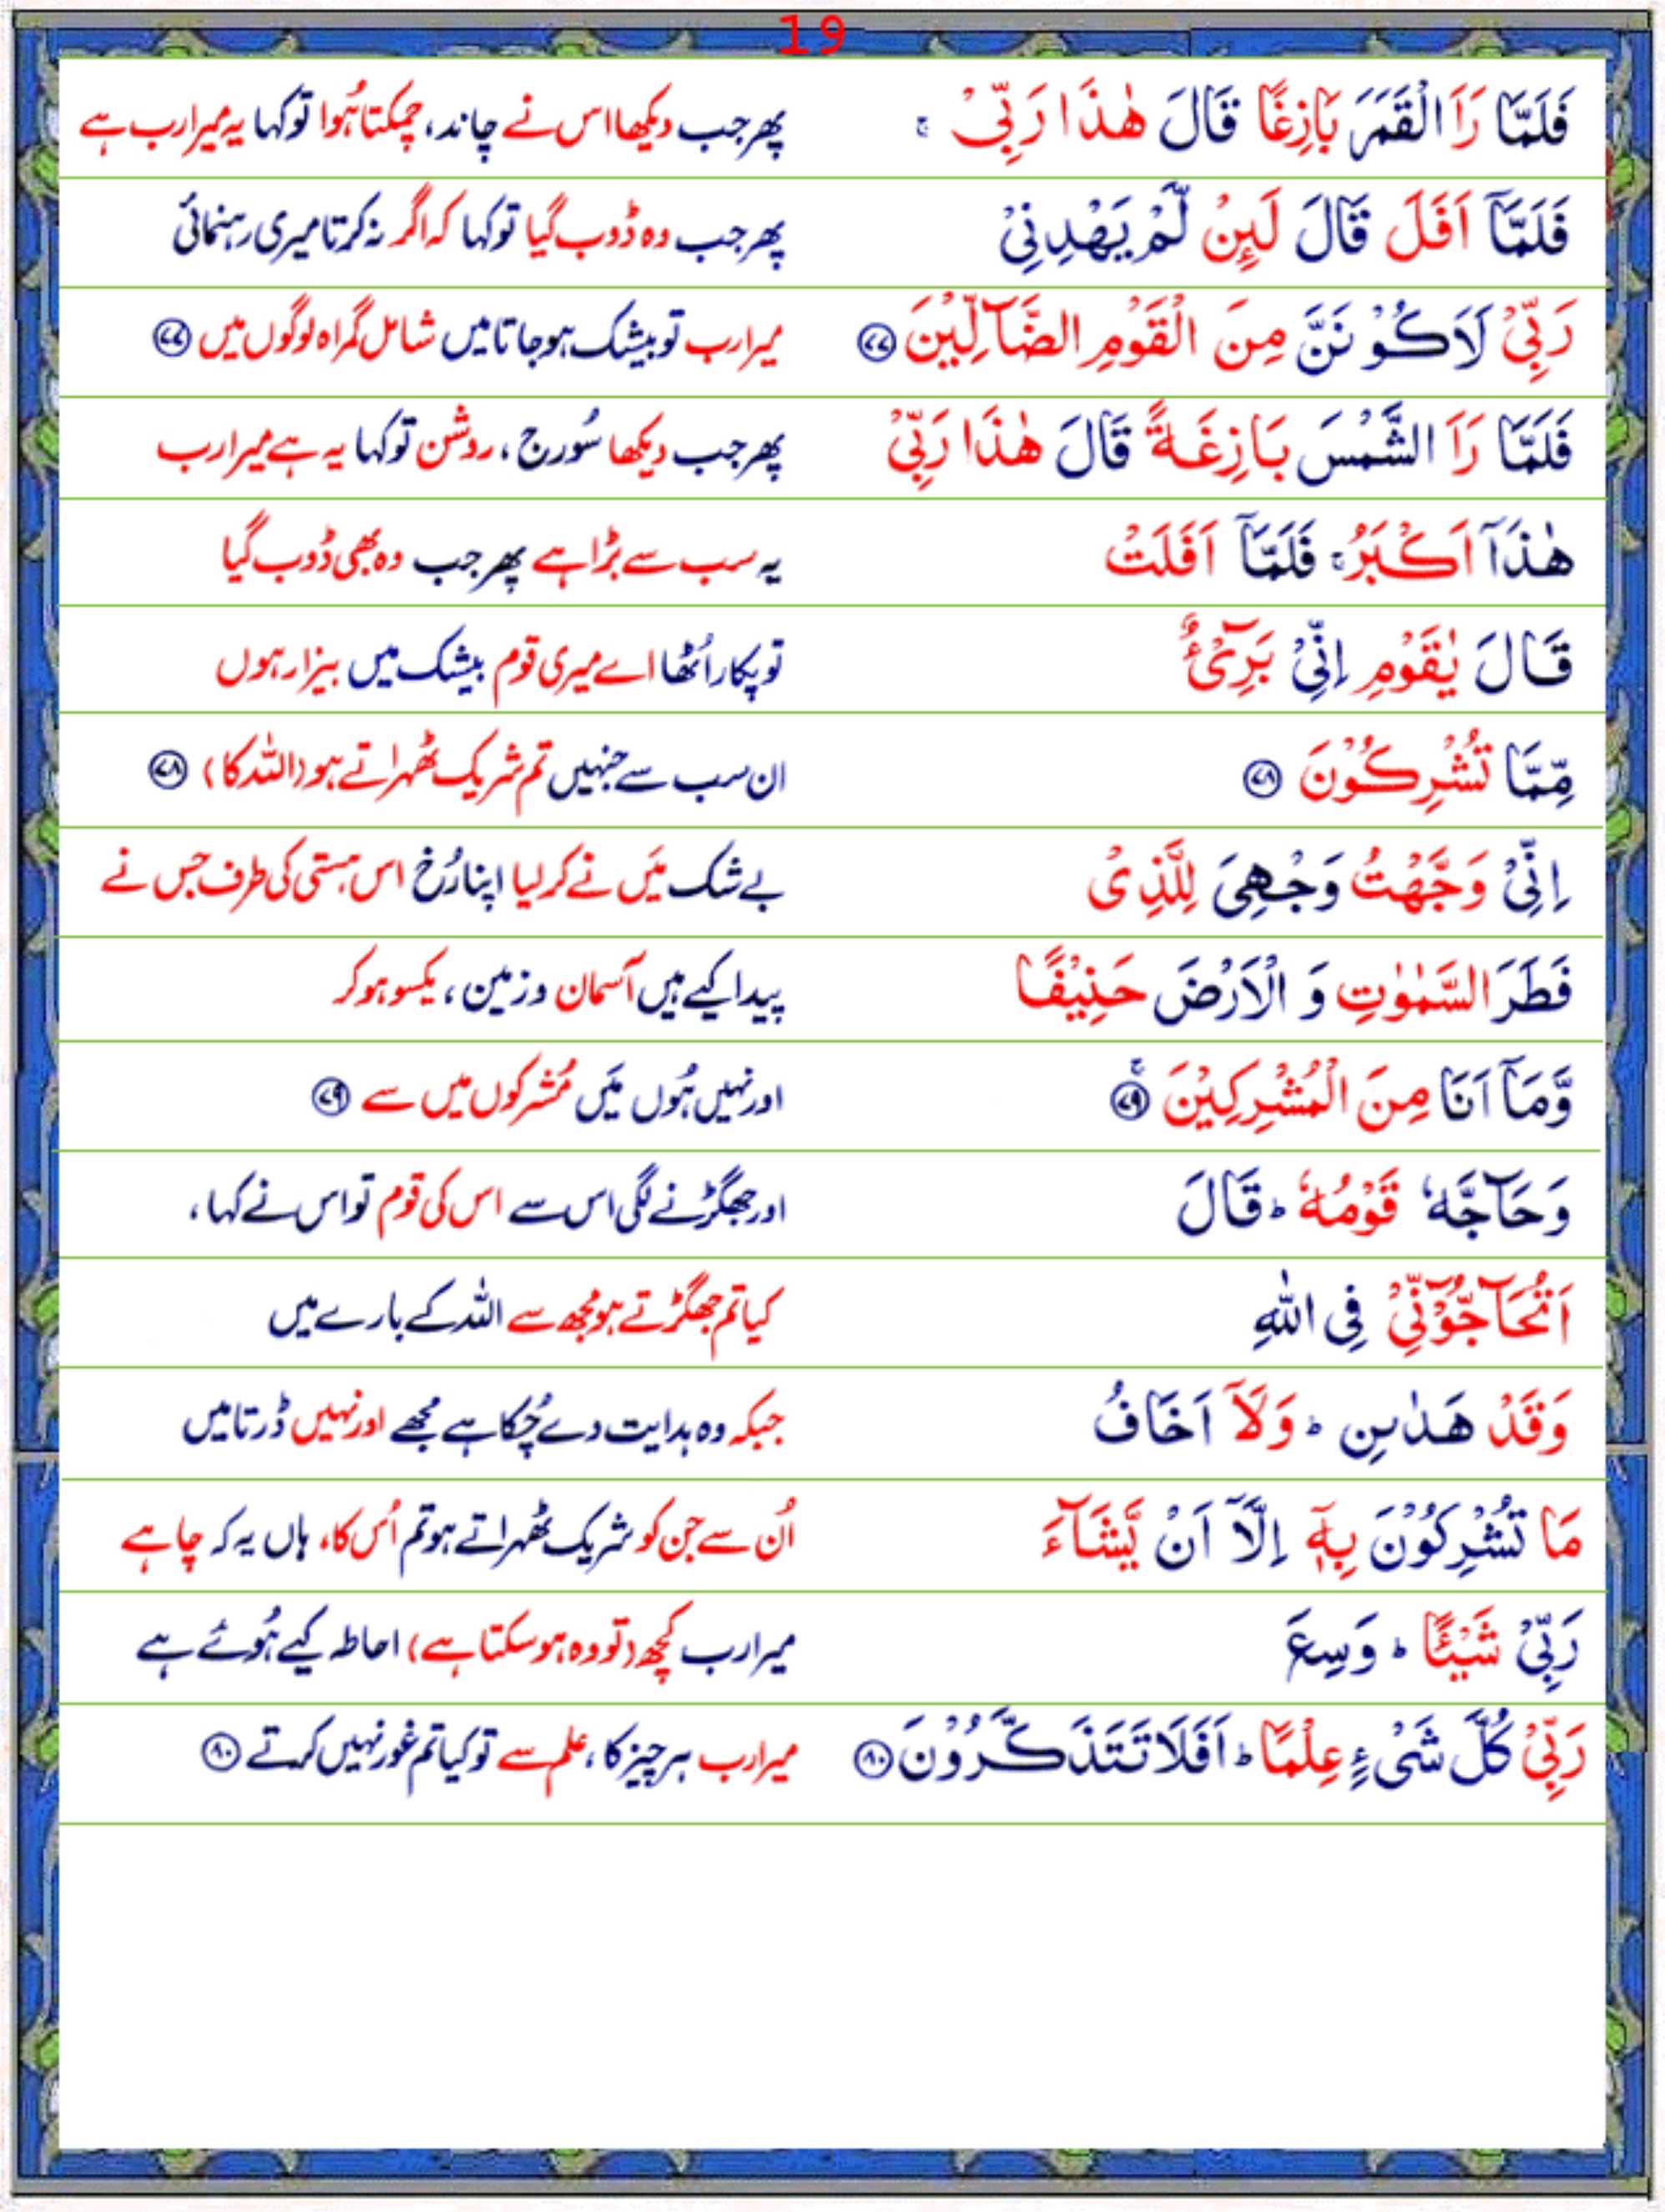 19
فَلَمَّا رَاَ الْقَمَرَ بَازِغًا قَالَ هٰذَا رَبِّیْ ۚ پھر جب دیکھا اس نے چاند، چمکتا ہُوا تو کہا یہ میرا رب ہے
فَلَمَّاۤ اَفَلَ قَالَ لَىِٕنْ لَّمْ یَهْدِنِیْ پھر جب وہ ڈوب گیا تو کہا کہ اگر نہ کرتا میری رہنمائی
رَبِّیْ لَاَكُوْنَنَّ مِنَ الْقَوْمِ الضَّآلِّیْنَ ۷۷ میرا رب تو بیشک ہو جاتا میں شامل گمراہ لوگوں میں ۷۷
فَلَمَّا رَاَ الشَّمْسَ بَازِغَةً قَالَ هٰذَا رَبِّیْ پھر جب دیکھا سُورج، روشن تو کہا یہ ہے میرا رب
هٰذَاۤ اَكْبَرُ ۚ فَلَمَّاۤ اَفَلَتْ یہ سب سے بڑا ہے پھر جب وہ بھی ڈوب گیا
قَالَ یٰقَوْمِ اِنِّیْ بَرِیْٓءٌ تو پکار اُٹھا اے میری قوم بیشک میں بیزار ہوں
مِّمَّا تُشْرِكُوْنَ ۷۸ ان سب سے جنہیں تم شریک ٹھہراتے ہو (اللہ کا) ۷۸
اِنِّیْ وَجَّهْتُ وَجْهِیَ لِلَّذِیْ بے شک مَیں نے کر لیا اپنا رُخ اس ہستی کی طرف جس نے
فَطَرَ السَّمٰوٰتِ وَ الْاَرْضَ حَنِیْفًا پیدا کیے ہیں آسمان و زمین، یکسو ہو کر
وَّمَاۤ اَنَا مِنَ الْمُشْرِكِیْنَ ۷۹ ۚ اور نہیں ہُوں مَیں مُشرکوں میں سے ۷۹
وَحَآجَّهٗ قَوْمُهٗ ؕ قَالَ اور جھگڑنے لگی اس سے اس کی قوم تو اس نے کہا،
اَتُحَآجُّوْٓنِّیْ فِی اللّٰهِ کیا تم جھگڑتے ہو مجھ سے اللہ کے بارے میں
وَقَدْ هَدٰىنِ ؕ وَلَاۤ اَخَافُ جبکہ وہ ہدایت دے چُکا ہے مجھے اور نہیں ڈرتا میں
مَا تُشْرِكُوْنَ بِهٖۤ اِلَّاۤ اَنْ یَّشَآءَ اُن سے جن کو شریک ٹھہراتے ہو تم اُس کا، ہاں یہ کہ چاہے
رَبِّیْ شَیْـًٔا ؕ وَسِعَ میرا رب کچھ (تو وہ ہو سکتا ہے) احاطہ کیے ہُوئے ہے
رَبِّیْ كُلَّ شَیْءٍ عِلْمًا ؕ اَفَلَا تَتَذَكَّرُوْنَ ۸۰ میرا رب ہر چیز کا، علم سے تو کیا تم غور نہیں کرتے ۸۰